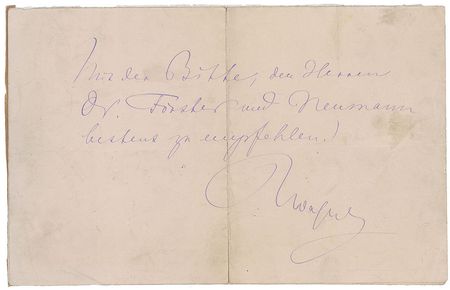 Mit der Bitte, den Herren
Dr. Förster und Neumann
bestens zu empfehlen!
RWagner